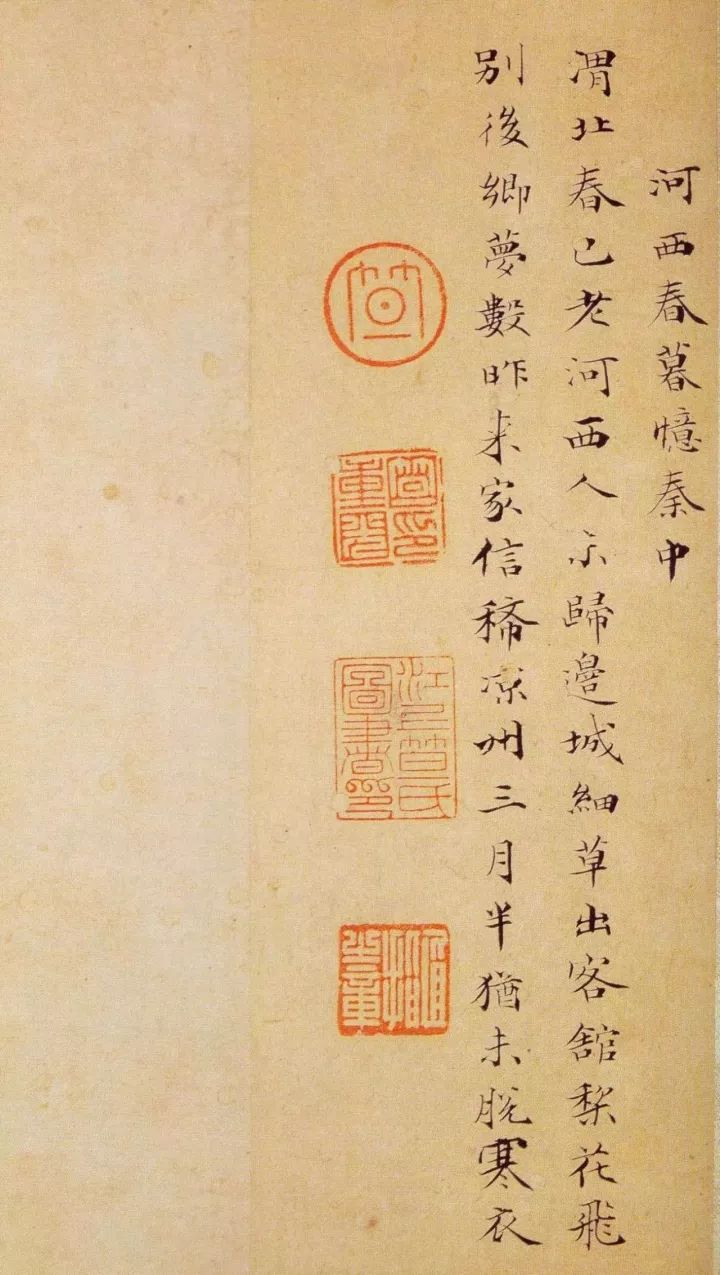 河西春暮憶秦中
渭北春已老河西人未歸邊城細草出客舘棃花飛
別後鄉夢數昨来家信稀凉州三月半猶未脫寒衣
笪
笪印重光
江上笪氏圖書印